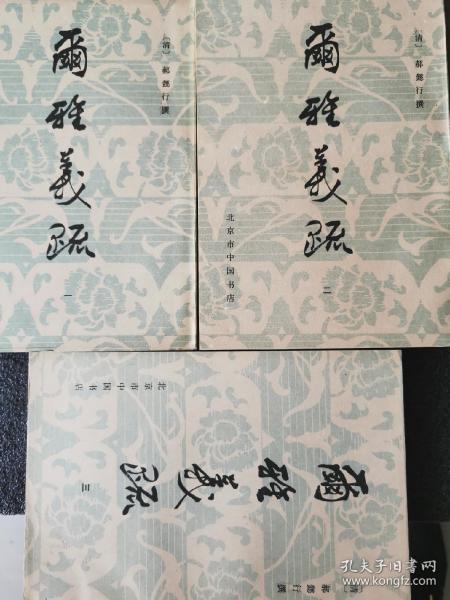 爾雅義疏
〔清〕郝懿行撰
一
爾雅義疏
〔清〕郝懿行撰
二
北京市中国书店
爾雅義疏
〔清〕郝懿行撰
三
北京市中国书店
孔夫子旧书网